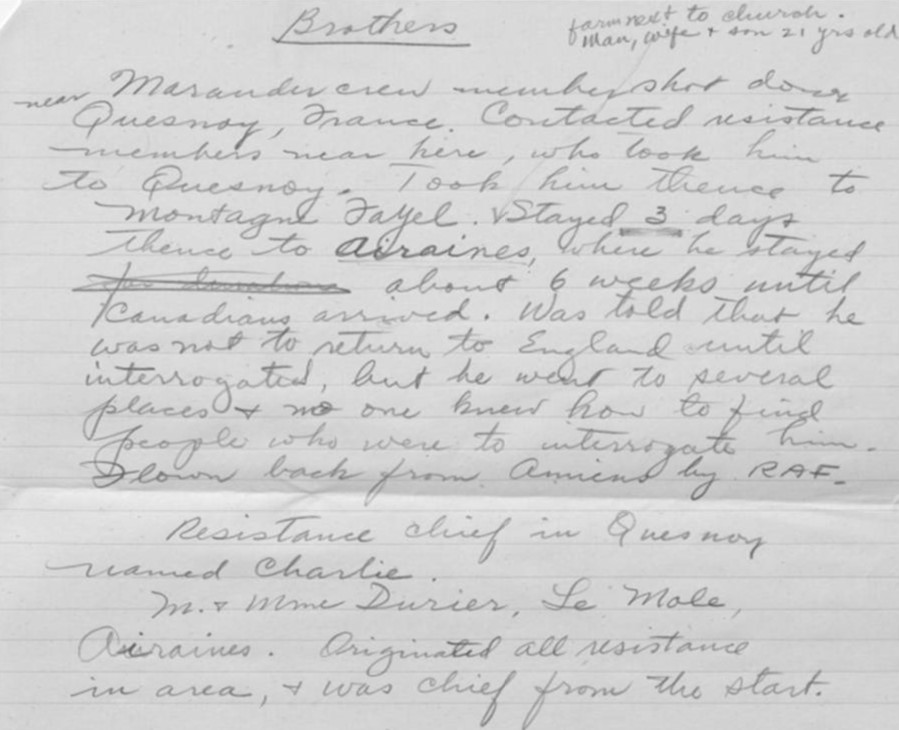 Brothers
farm next to church.
Man, wife & son 21 yrs old
near Marauder crew member shot down
Quesnoy, France. Contacted resistance
members near here, who took him
to Quesnoy. Took him thence to
Montagne Fayel. & Stayed 3 days
thence to Airaines, where he stayed
about 6 weeks until
Canadians arrived. Was told that he
was not to return to England until
interrogated, but he went to several
places & no one knew how to find
people who were to interrogate him.
Flown back from Amiens by RAF.
Resistance chief in Quesnoy
named Charlie.
M. & Mme Durier, Le Mole,
Airaines. Originated all resistance
in area, & was chief from the start.